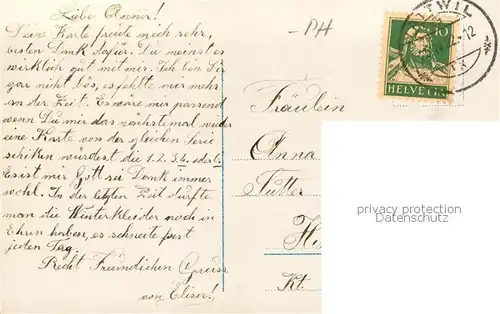 Liebe Anna!
Deine Karte freute mich sehr,
besten Dank dafür. Du meinst es
wirklich gut mit mir. Ich bin Dir
gar nicht bös, es fehlte mir mehr
an der Zeit. Es wäre mir passend
wenn Du mir das nächstemal wieder
eine Karte von der gleichen Serie
schiken würdest die 1. 2. 3. 4. oder 6.
Es ist mir Gott sei Dank immer
wohl. In der letzten Zeit durfte
man die Winterkleider noch in
Ehren haben, es schneite fast
jeden Tag.
Recht Freundlichen Gruss
von Eliser!
-PH
TWIL
10
HELVETIA
Fräulein
Anna
Kt
privacy protection
Datenschutz